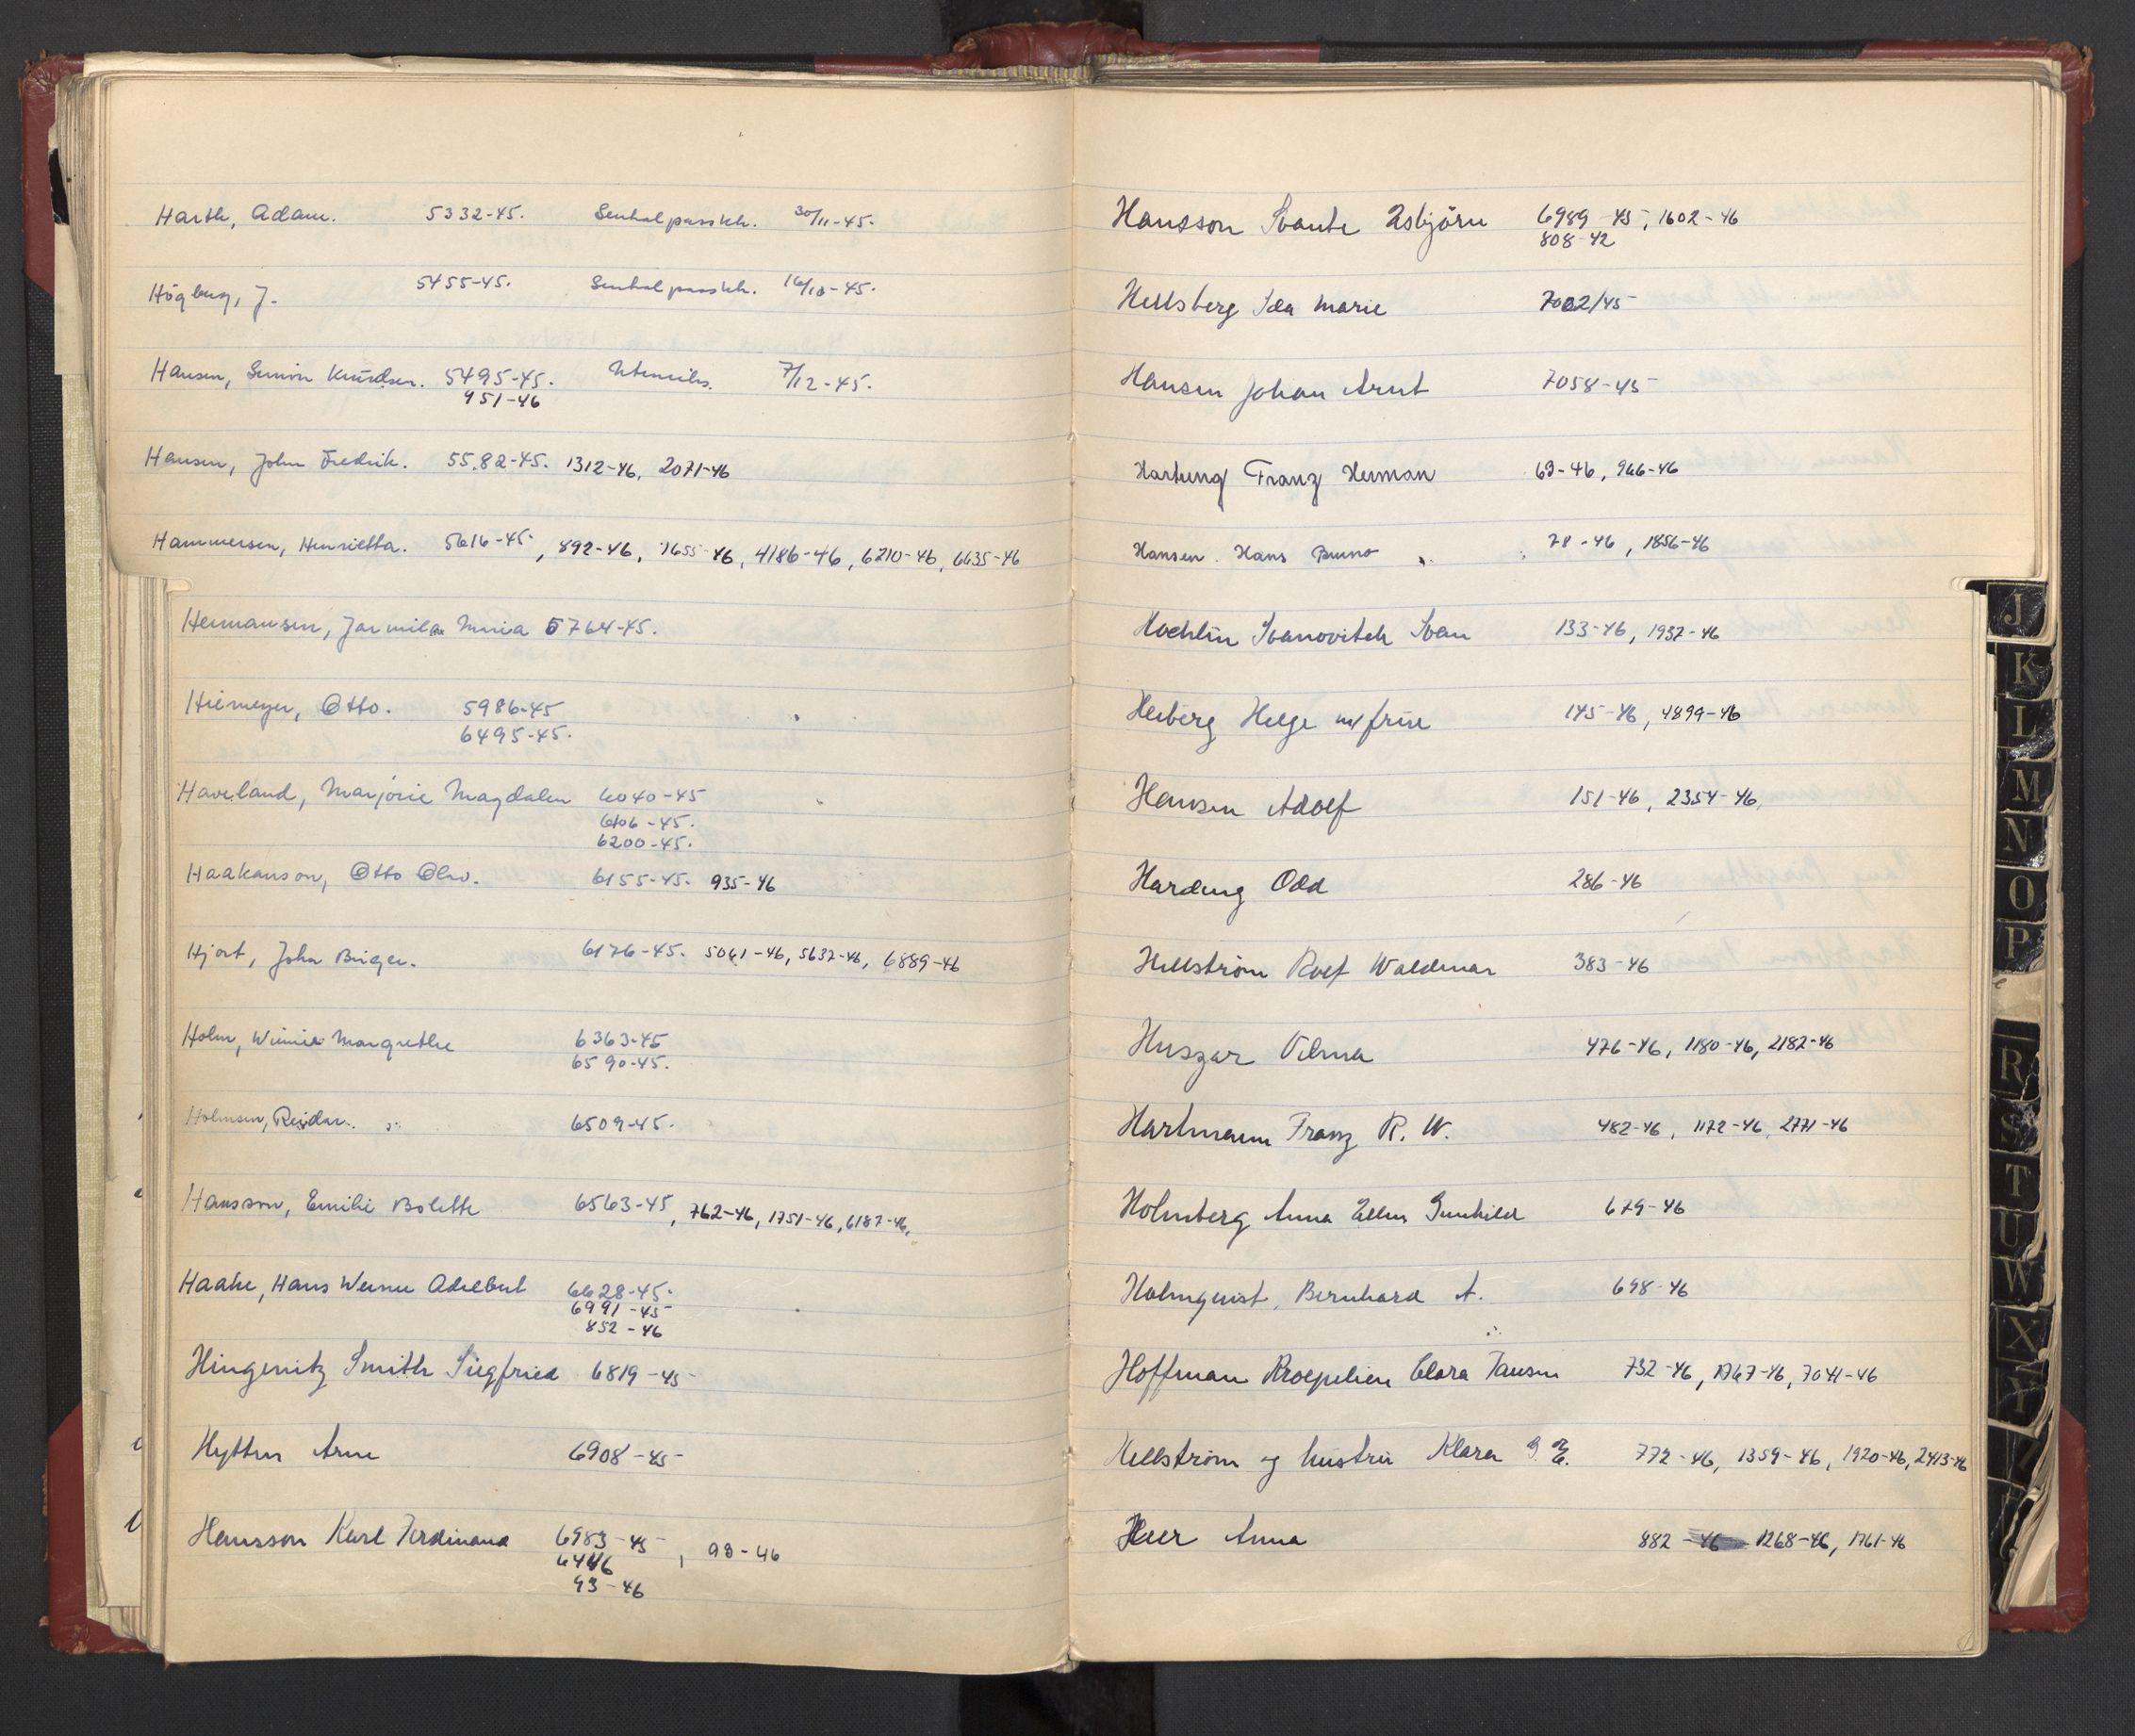 Harth, Adam. 5332-45. Sentralpasskk. 30/11-45.
Högberg, J. 5455-45. Sentralpasskk. 16/10-45.
Hansen, Simon Knudsen. 5495-45. 7/12-45.
951-46
Hansen, John Fredrik. 5582-45. 1312-46, 2071-46
Hammersen, Henrietta. 5616-45, 892-46, 1655-46, 4186-46, 6210-46, 6635-46
Hermansen, Jarmila Maria 5764-45.
Hiemeyer, Otto. 5986-45
6495-45.
Haveland, Marjorie Magdalen 6040-45
6106-45.
6200-45.
Haakanson, Otto Olav. 6155-45. 935-46
Hjort, John Birger. 6176-45. 5061-46, 5632-46, 6889-46
Holm, Winnie Margrethe 6363-45
6590-45.
Holmsen, Reidar. 6509-45.
Hansson, Emilie Bolette 6563-45, 762-46, 1751-46, 6187-46,
Haake, Hans Werner Adelbert 6628-45.
6991-45
852-46
Hingenitz Smith Siegfried 6819-45
Hytten Arne 6908-45
Hansson Karl Ferdinand 6983-45, 93-46
93-46
Hansson Svante Esbjörn 6989-45, 1602-46
808-42
Hellsberg Ida Marie 7002/45
Hansen Johan Arnt 7058-45
Hartung Franz Herman 63-46, 966-46
Hansen. Hans Bruno 78-46, 1856-46
Hoehlin Ivanovitch Ivan 133-46, 1937-46
Heiberg Helge m/frue 145-46, 4899-46
Hansen Adolf 151-46, 2354-46,
Harding Odd 286-46
Hellström Rolf Waldemar 383-46
Huszar Vilma 476-46, 1180-46, 2182-46
Hartmann Franz R. W. 482-46, 1172-46, 2771-46
Holmberg Anna Ellen Gunhild 679-46
Holmquist, Bernhard A. 698-46
Hoffman Kroepelien Clara Jansen 732-46, 1767-46, 7041-46
Hellström og hustru Klara G. E. 772-46, 1359-46, 1920-46, 2413-46
Heer Anna 882-46 1268-46, 1761-46
J
K
L
M
N
O
P
R
S
T
U
W
X
Y